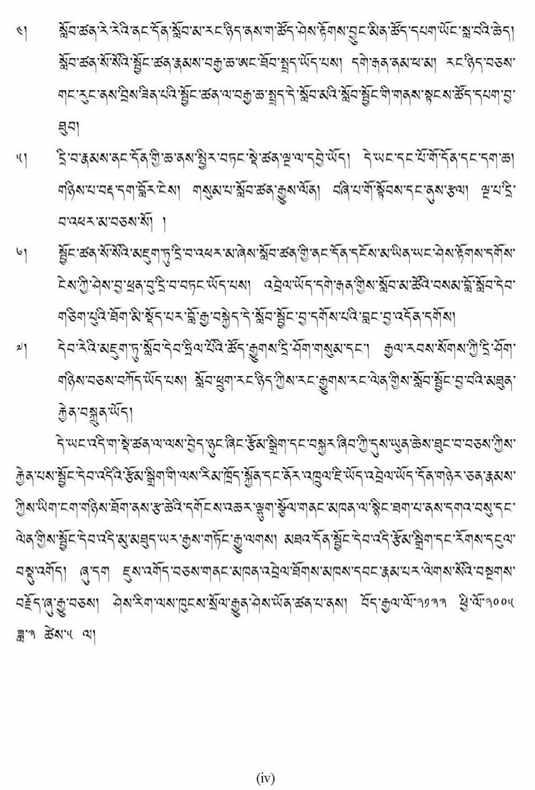 ༤། སློབ་ཚན་རེ་རེའི་ནང་དོན་སློབ་མ་རང་ཉིད་ནས་ག་ཚོད་ཤེས་རྟོགས་བྱུང་མིན་ཚོད་དཔག་ཡོང་སླ་བའི་ཆེད།
སློབ་ཚན་སོ་སོའི་སྦྱོང་ཚན་རྣམས་བརྒྱ་ཆ་ཨང་ཐོབ་སྤྲད་ཡོད་པས། དགེ་རྒན་ནམ་ཕ་མ། རང་ཉིད་བཅས་
གང་རུང་ནས་བྲིས་ཟིན་པའི་སྦྱོང་ཚན་ལ་བརྒྱ་ཆ་སྤྲད་དེ་སློབ་མའི་སློབ་སྦྱོང་གི་གནས་སྟངས་ཚོད་དཔག་བྱ་
ཐུབ།
༥། དྲི་བ་རྣམས་ནང་དོན་གྱི་ཆ་ནས་སྤྱིར་བཏང་སྡེ་ཚན་ལྔ་ལ་དབྱེ་ཡོད། དེ་ཡང་དང་པོ་གོ་དོན་དང་དག་ཆ།
གཉིས་པ་བརྡ་དག་བློར་ངེས། གསུམ་པ་སློབ་ཚན་རྒྱུས་ལོན། བཞི་པ་གོ་སྟོབས་དང་ནུས་རྩལ། ལྔ་པ་དྲི་
བ་འཕར་མ་བཅས་སོ། །
༦། སྦྱོང་ཚན་སོ་སོའི་མཇུག་ཏུ་དྲི་བ་འཕར་མ་ཞེས་སློབ་ཚན་གྱི་ནང་དོན་དངོས་མ་ཡིན་ཡང་ཤེས་རྟོགས་དགོས་
ངེས་ཀྱི་ཤེས་བྱ་ཕྲན་བུ་དྲི་བ་བཏང་ཡོད་པས། འབྲེལ་ཡོད་དགེ་རྒན་གྱིས་སློབ་མ་ཚོའི་བསམ་བློ་སློབ་དེབ་
གཅིག་པུའི་ཐོག་མི་སྡོད་པར་བློ་རྒྱ་བསྐྱེད་དེ་སློབ་སྦྱོང་བྱ་དགོས་པའི་བླང་བྱ་འདོན་དགོས།
༧། དེབ་རེའི་མཇུག་ཏུ་སློབ་དེབ་ཧྲིལ་པོའི་ཚོད་རྒྱུགས་དྲི་ཤོག་གསུམ་དང་། རྒྱལ་རབས་སོགས་ཀྱི་དྲི་ཤོག་
གཉིས་བཅས་བཀོད་ཡོད་པས། སློབ་ཕྲུག་རང་ཉིད་ཀྱིས་རང་རྒྱུགས་རང་ལེན་གྱིས་སློབ་སྦྱོང་བྱ་བའི་མཐུན་
རྐྱེན་བསྐྲུན་ཡོད།
དེ་ཡང་འདི་ག་སྡེ་ཚན་ལ་ལས་བྱེད་ཉུང་ཞིང་རྩོམ་སྒྲིག་དང་བསྐྱར་ཞིབ་ཀྱི་དུས་ཡུན་ཆེས་ཐུང་བ་བཅས་ཀྱིས་
རྐྱེན་པས་སྦྱོང་དེབ་འདིའི་རྩོམ་སྒྲིག་གི་ལས་རིམ་ཁྲོད་སྐྱོན་དང་ནོར་འཁྲུལ་ཇི་ཡོད་འབྲེལ་ཡོད་དོན་གཉེར་ཅན་རྣམས་
ཀྱིས་ཡིག་ངག་གཉིས་ཐོག་ནས་རྩ་ཆེའི་དགོངས་འཆར་ལྷུག་སྩོལ་གནང་མཁན་ལ་སྙིང་ཐག་པ་ནས་དགའ་བསུ་དང་
ལེན་གྱིས་སྦྱོང་དེབ་འདི་མུ་མཐུད་ཡར་རྒྱས་གཏོང་རྒྱུ་ལགས། མཐའ་དོན་སྦྱོང་དེབ་འདི་རྩོམ་སྒྲིག་དང་རོགས་དངུལ་
བསྡུ་འགོད། ཞུ་དག ཇུས་འགོད་བཅས་གནང་མཁན་འབྲེལ་ཐོགས་མཁས་དབང་རྣམ་པར་ལེགས་སོའི་བསྔགས་
བརྗོད་ཞུ་རྒྱུ་བཅས། ཤེས་རིག་ལས་ཁུངས་སྲོལ་རྒྱུན་ཤེས་ཡོན་ཚན་པ་ནས། བོད་རྒྱལ་ལོ་༢༡༣༢ ཕྱི་ལོ་༢༠༠༥
ཟླ་༣ ཚེས་༥ ལ།
(iv)